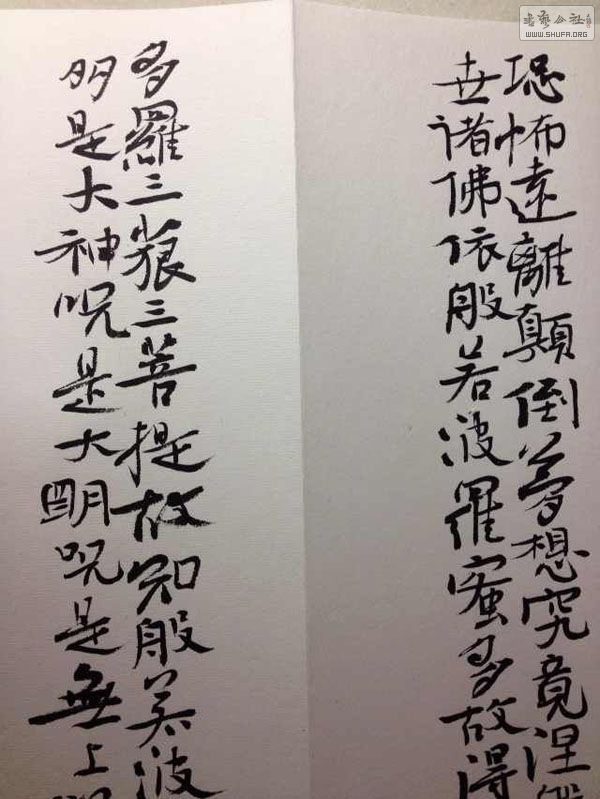 恐怖遠離顛倒夢想究竟涅
世諸佛依般若波羅蜜多故得
多羅三藐三菩提故知般若波
多是大神咒是大明咒是無上
書藝公社
WWW.SHUFA.ORG